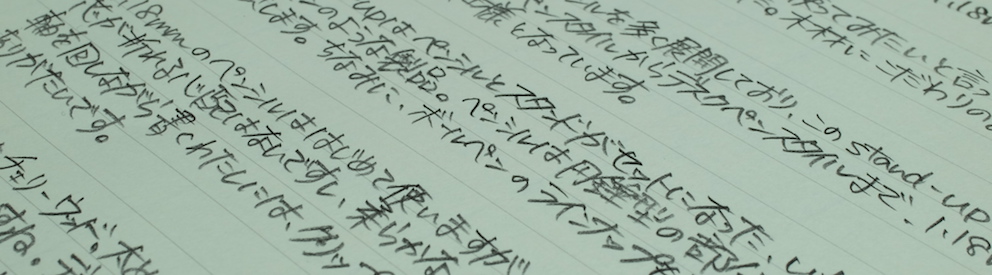 1.18m
てみたいと言っ
木材にこだわりの
ルを多く展開しており、この stand-up
ペンスタイルからデスクペンスタイルまで、1.18m
様となっています。
upはペンシルとスタンドがセットになった、
のような製品。ペンシルは円錐型の部
します。ちなみに、ボールペンのラインナップ
1.18mmのペンシルははじめて使いますが
芯が折れる心配はないですし、柔らかな
軸を回しながら書くわたしには、クリッ
ありがたいです。
チェリーウッド。木
すね。